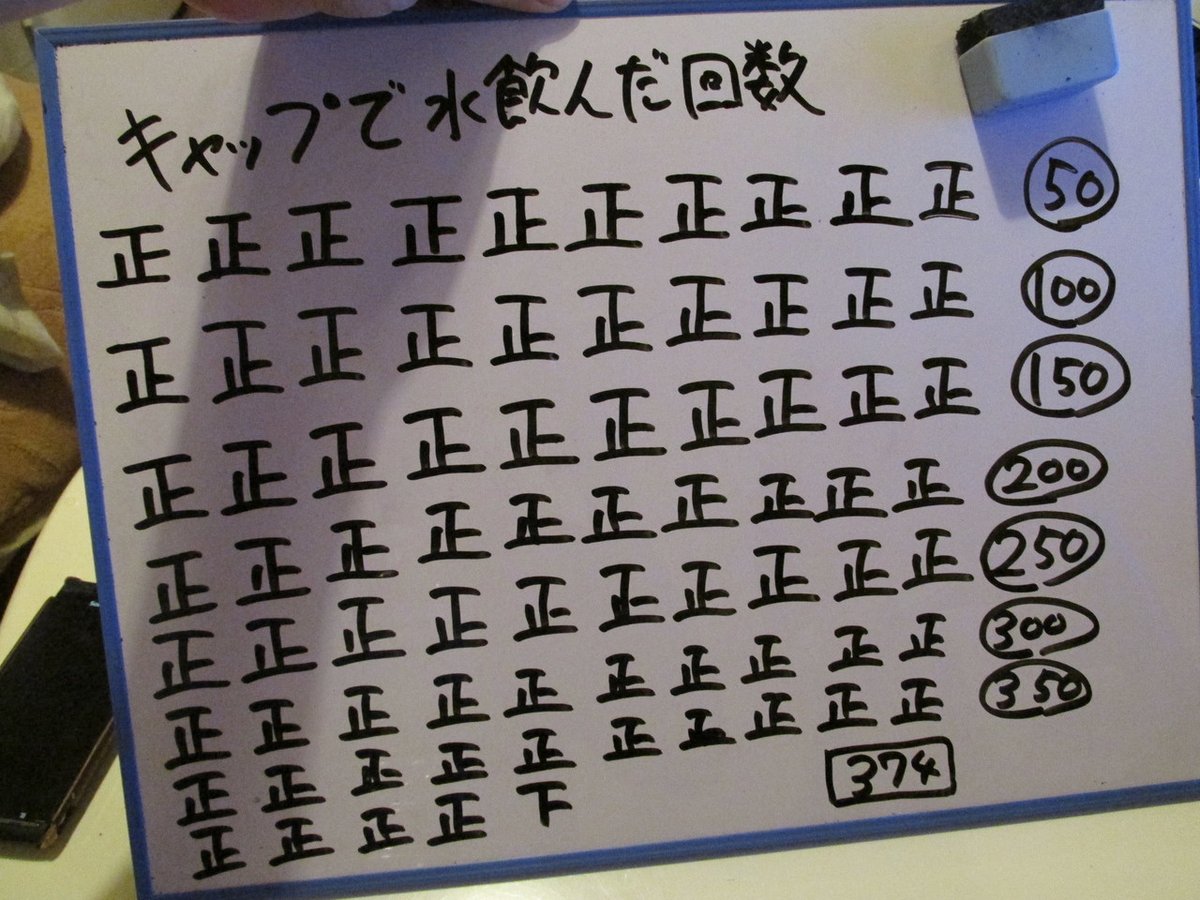 キャップで水飲んだ回数
正正正正正正正正正正 50
正正正正正正正正正正 100
正正正正正正正正正正 150
正正正正正正正正正正 200
正正正正正正正正正正 250
正正正正正正正正正正 300
正正正正正正正正正正 350
正正正正下 374